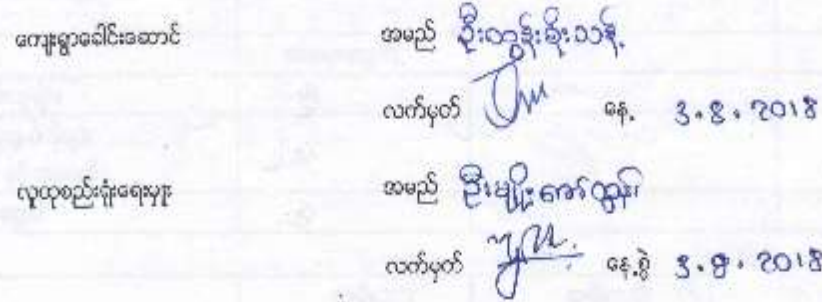 ကျေးရွာခေါင်းဆောင် အမည် ဦးထွန်းစိုးသန့်
လက်မှတ် နေ့ 3.8.2018
လူထုစည်းရုံးရေးမှုး အမည် ဦးမျိုးဇော်ထွန်း
လက်မှတ် နေ့စွဲ 3.8.2018